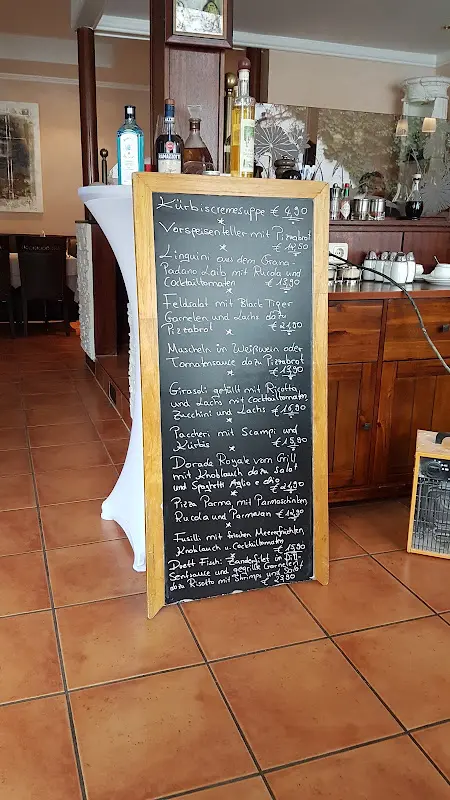 Kürbiscremesuppe € 4,90
Vorspeisenteller mit Pizzabrot
Linguini aus dem Grana-
Padano Laib mit Rucola und
Cocktailtomaten € 13,90
Feldsalat mit Black Tiger
Garnelen und Lachs dazu
Pizzabrot € 21,90
Muscheln in Weißwein oder
Tomatensauce dazu Pizzabrot
€ 13,90
Girasoli gefüllt mit Ricotta
und Lachs mit Cocktailtomaten,
Zucchini und Lachs € 16,90
Paccheri mit Scampi und
Kürbis € 15,90
Dorade Royale vom Grill
mit Knoblauch dazu Salat
und Spaghetti Aglio e olio
€ 21,90
Pizza Parma mit Parmaschinken
Rucola und Parmesan € 12,90
Fusilli mit frischen Meeresfrüchten,
Knoblauch u. Cocktailtomaten
€ 15,90
Drett Fisch: Zanderfilet in Dill-
Senfsauce und gegrillte Garnelen
dazu Risotto mit Shrimps und Salat
23,90